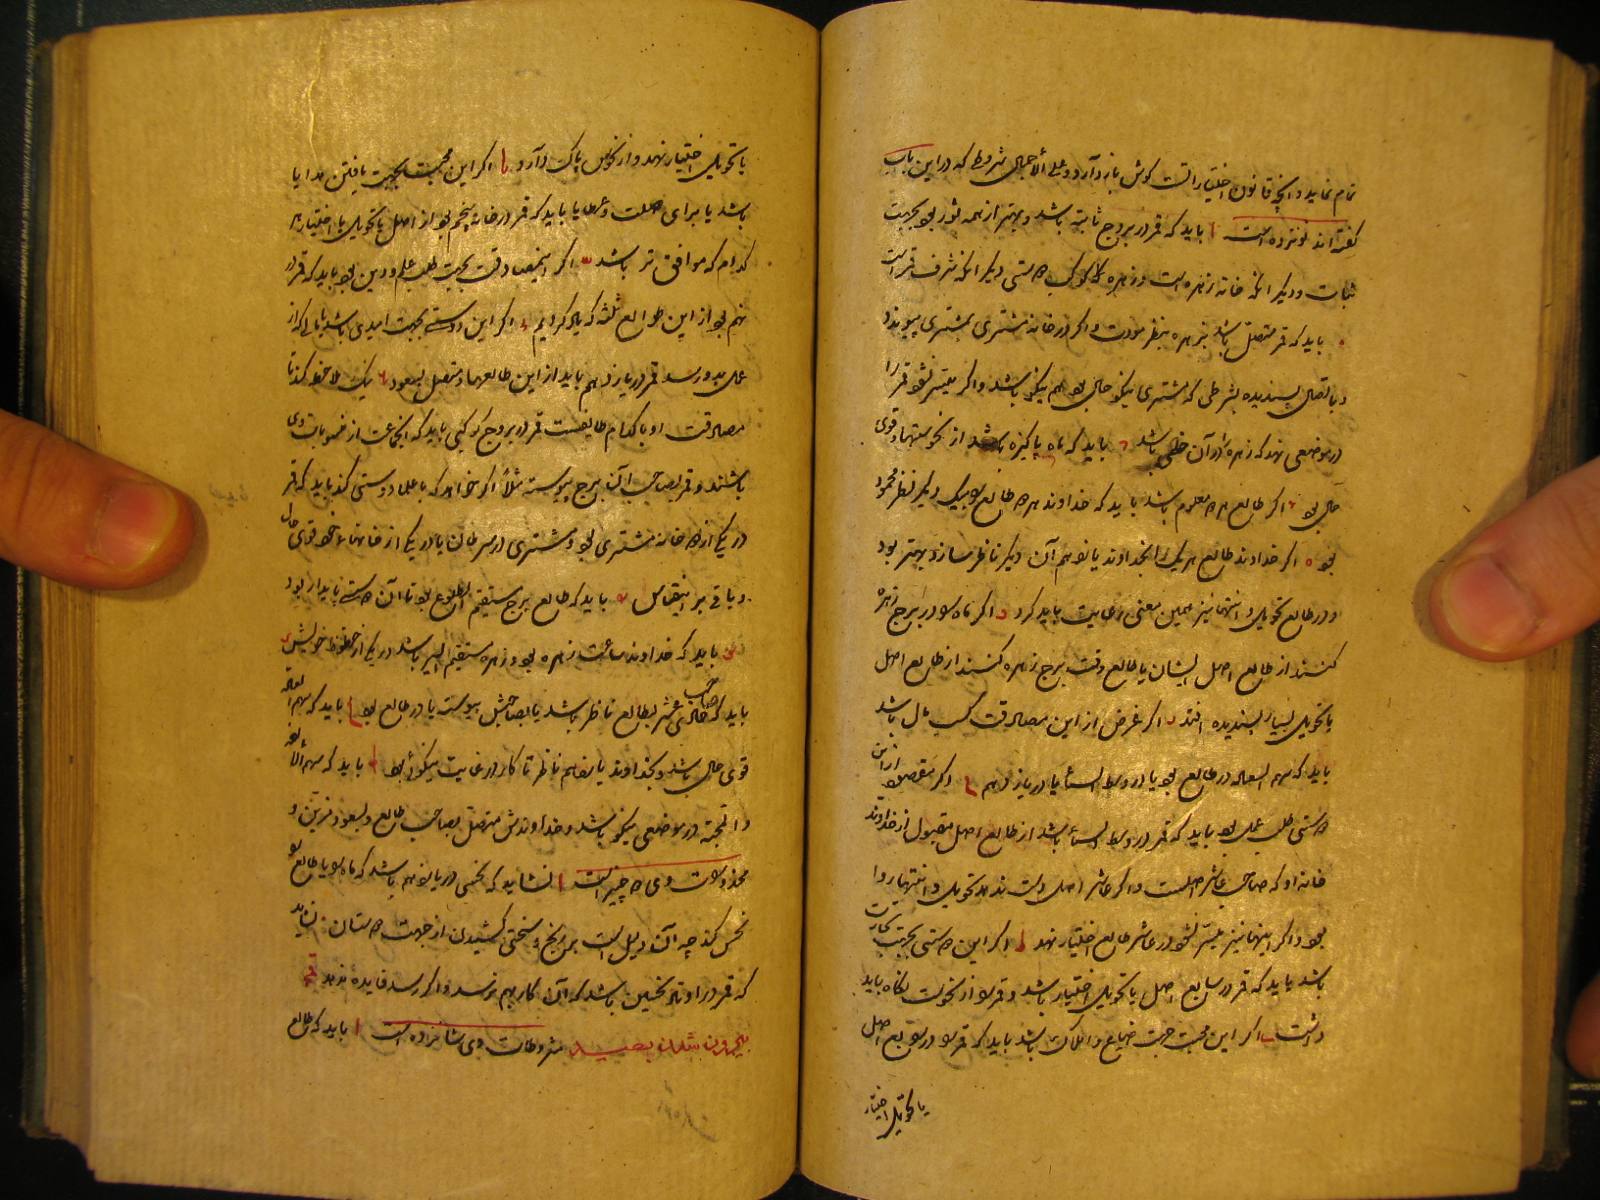 تمام نماید و آنچه قانون اختیار است گوش باز دارد و علی الاجمال شروطی که در این باب
گفته اند نوزده است ا باید که قمر در بروج ثابته باشد و بهتر از همه ثور بود بجهت
ثبات و دیگر آنکه خانه زهره است و زهره کوکب دوستی دیگر آنکه شرف قمر است
باید که قمر متصل باشد بزهره بنظر مودت و اگر در خانه مشتری بمشتری پیوندد
و باتصال پسندیده بشرطی که مشتری نیکو حال بود هم نیکو باشد و اگر میسر نشود قمر را
در موضعی نهد که زهره را در آن حظی باشد باید که ماه پاکیزه باشد از نحوستها و قوی
حال بود اگر طالع هر دو معلوم باشد باید که خداوند هر دو طالع بیکدیگر نظر محمود
بود ه اگر خداوند طالع هر یک را بخداوند یازدهم آن دیگر ناظر سازد بهتر بود
و در طالع تحویل و انتها نیز همین معنی رعایت باید کرد اگر ماه در برج زهره
کنند از طالع اصل ایشان یا طالع وقت برج زهره کنند از طالع اصل
یا تحویل بسیار پسندیده افتد اگر غرض از این مصادقت کسب مال باشد
باید که سهم السعاده در طالع بود یا در وسط السما یا در یازدهم و اگر مقصود از این
دوستی طلب عمل بود باید که قمر در وسط السما باشد از طالع اصل مقبول از خداوند
خانه او که صاحب عاشر اصلست و اگر عاشر اصل دست ندهد تحویل و انتها روا
بود و اگر اینها نیز میسر نشود در عاشر طالع اختیار نهد اگر این دوستی بجهت تجارت
باشد باید که قمر در سابع اصل یا تحویل یا اختیار باشد و قمر از نحوست نگاه باید
داشت اگر این محبت جهت ضیاع و املاک باشد باید که قمر در رابع اصل
یا تحویل اختیار
یا تحویل اختیار نهد و از نحوس پاک دارد اگر این محبت بجهت یافتن هدایا
باشد یا برای صلت و عطایا باید که قمر در خانه پنجم بود از اصل یا تحویل یا اختیار هر
کدام که موافق تر باشد اگر مصادقت بجهت طلب علم و دین بود باید که قمر در
نهم بود از این طوالع ثلثه که یاد کردیم اگر این دوستی بجهت امیدی باشد یا مالی که از
عمل بدو رسد قمر در یازدهم باید از این طالعها و متصل بسعود نیک ملاحظه کند تا
مصادقت او با کدام طایفست قمر در بروج کوکبی باید که آنجماعت از منسوبات وی
باشند و قمر بصاحب آن برج پیوسته مثلا اگر خواهد که با علما دوستی کند باید که قمر
در یکی از دو خانه مشتری بود و مشتری در سرطان یا در یکی از خانهاء خود قوی حال
و باقی بر اینقیاس باید که طالع برج مستقیم الطلوع بود تا آن دوستی پایدار بود
باید که خداوند ساعت زهره بود و زهره مستقیم السیر باشد در یکی از حظوظ خویش
باید که صاحب عشر بطالع ناظر باشد یا بصاحبش پیوسته یا در طالع بود باید که سهم السعاده
قوی حال باشد و بخداوند یازدهم ناظر تا کار در غایت نیکوئی بود باید که سهم الالفه
و المحبة در موضعی نیکو باشد و خداوندش متصل بصاحب طالع و بسعود مزین و
محذورات وی دو چیز است ا نشاید که نحسی در یازدهم باشد که ماه یا طالع بدو
نحس کند چه آن دلیل است بر رنج و سختی کشیدن از جهت دوستان نشاید
که قمر در اوتاد نحسین باشد که آن کار بهم نرسد و اگر رسد فایده ندهد
بیرون شدن بصید مشروطات وی شانزده است ا باید که طالع